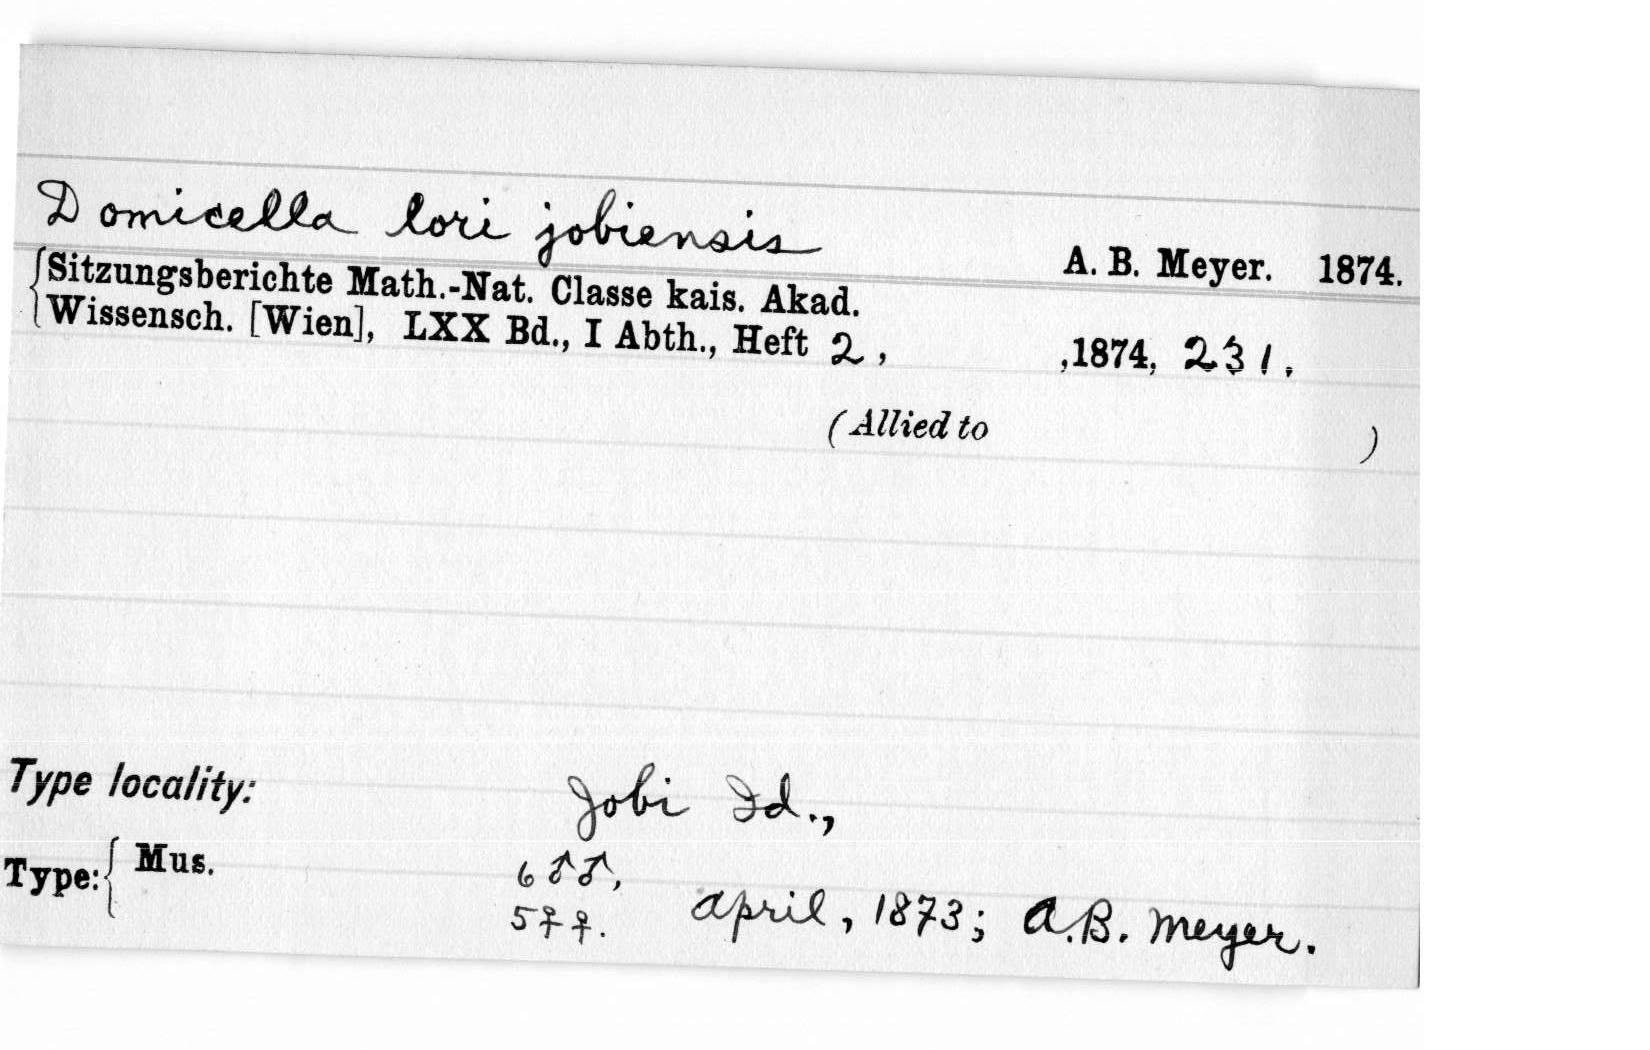 Domicella lori jobiensis A. B. Meyer. 1874.
Sitzungsberichte Math.-Nat. Classe kais. Akad.
Wissensch. [Wien], LXX Bd., I Abth., Heft 2, ,1874, 231.
(Allied to )
Type locality: Jobi Id.,
Type: { Mus. 6 ♂♂,
5 ♀♀. April, 1873; A.B. Meyer.